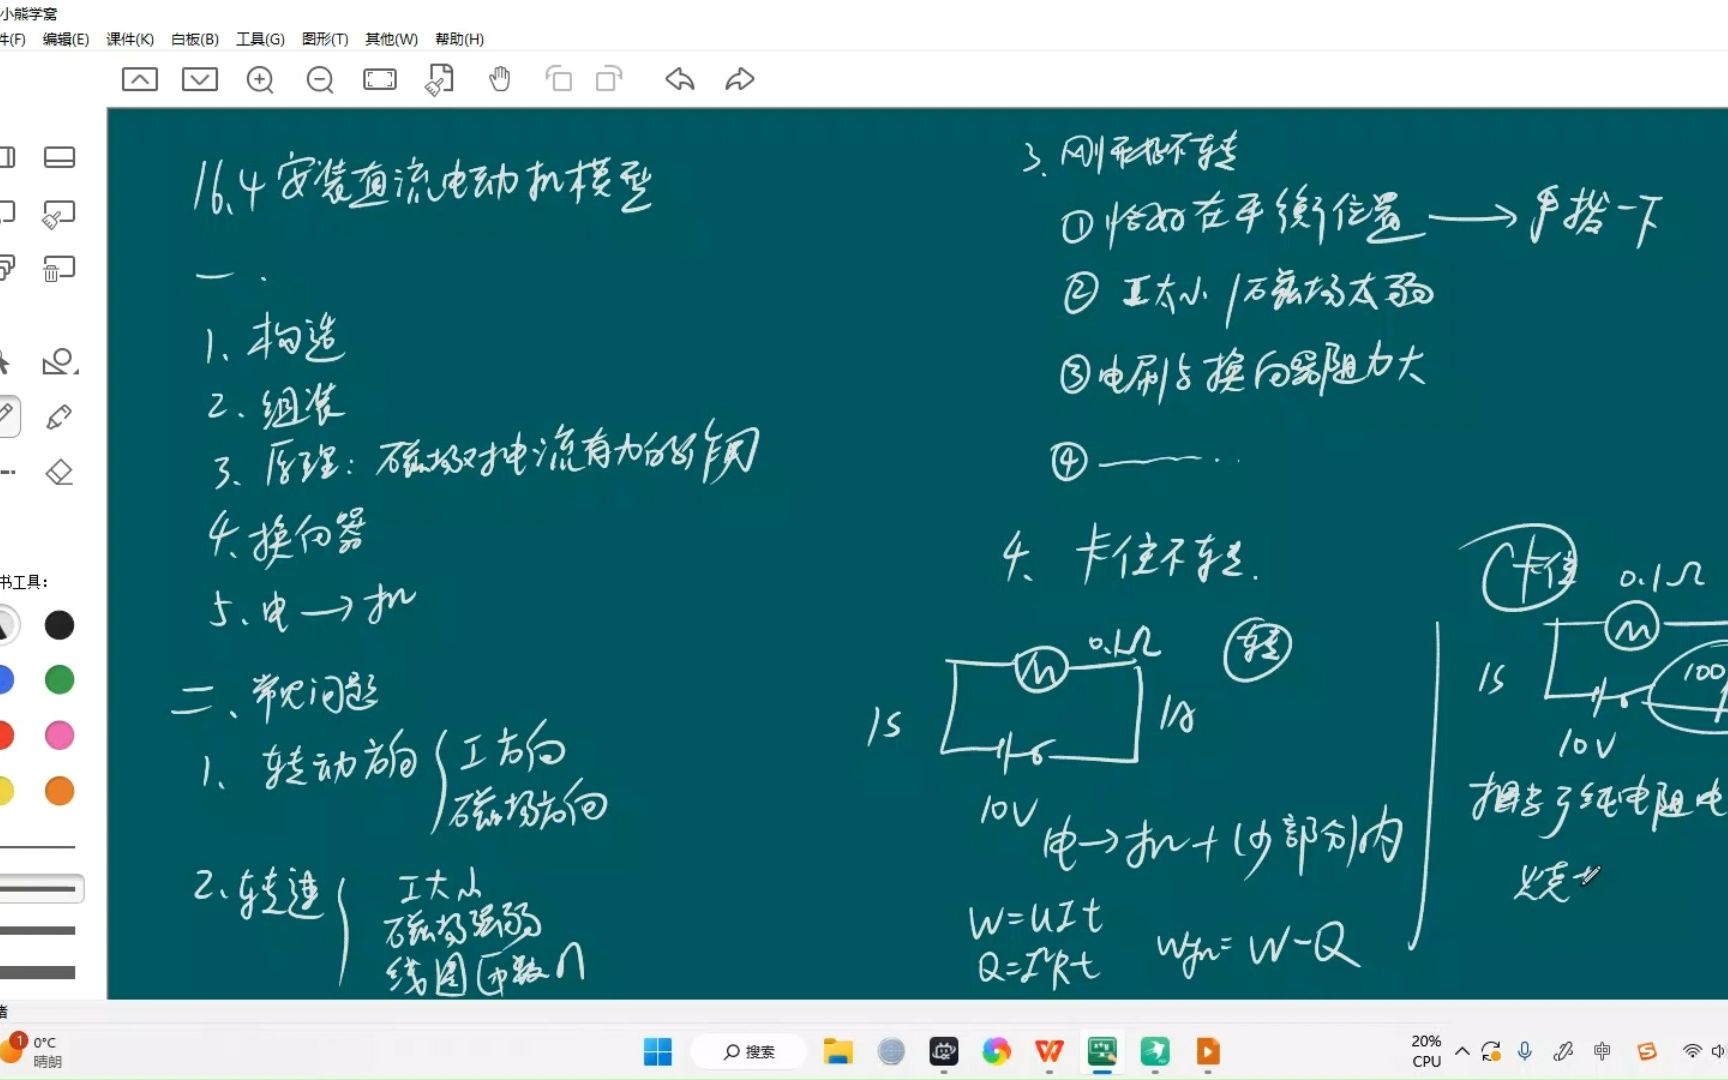 小熊学窝
件(F) 编辑(E) 课件(K) 白板(B) 工具(G) 图形(T) 其他(W) 帮助(H)
书工具:
16.4 安装直流电动机模型
一.
1、构造
2、组装
3、原理：磁场对电流有力的作用
4、换向器
5、电→机
二、常见问题
1、转动方向 { I方向
磁场方向
2、转速 { I大小
磁场强弱
线圈匝数n
3、刚开始不转
① 恰好在平衡位置 → 手拨一下
② I太小/磁场太弱
③ 电刷与换向器阻力大
④ ——..
4、卡住不转.
0.1Ω
转
1S
1A
10V
电→机+(少部分)内
W=UIt
Q=I²Rt
W机=W-Q
卡住
0.1Ω
1S
100
10V
相当于纯电阻电
烧
0°C
晴朗
1
搜索
20%
CPU
中